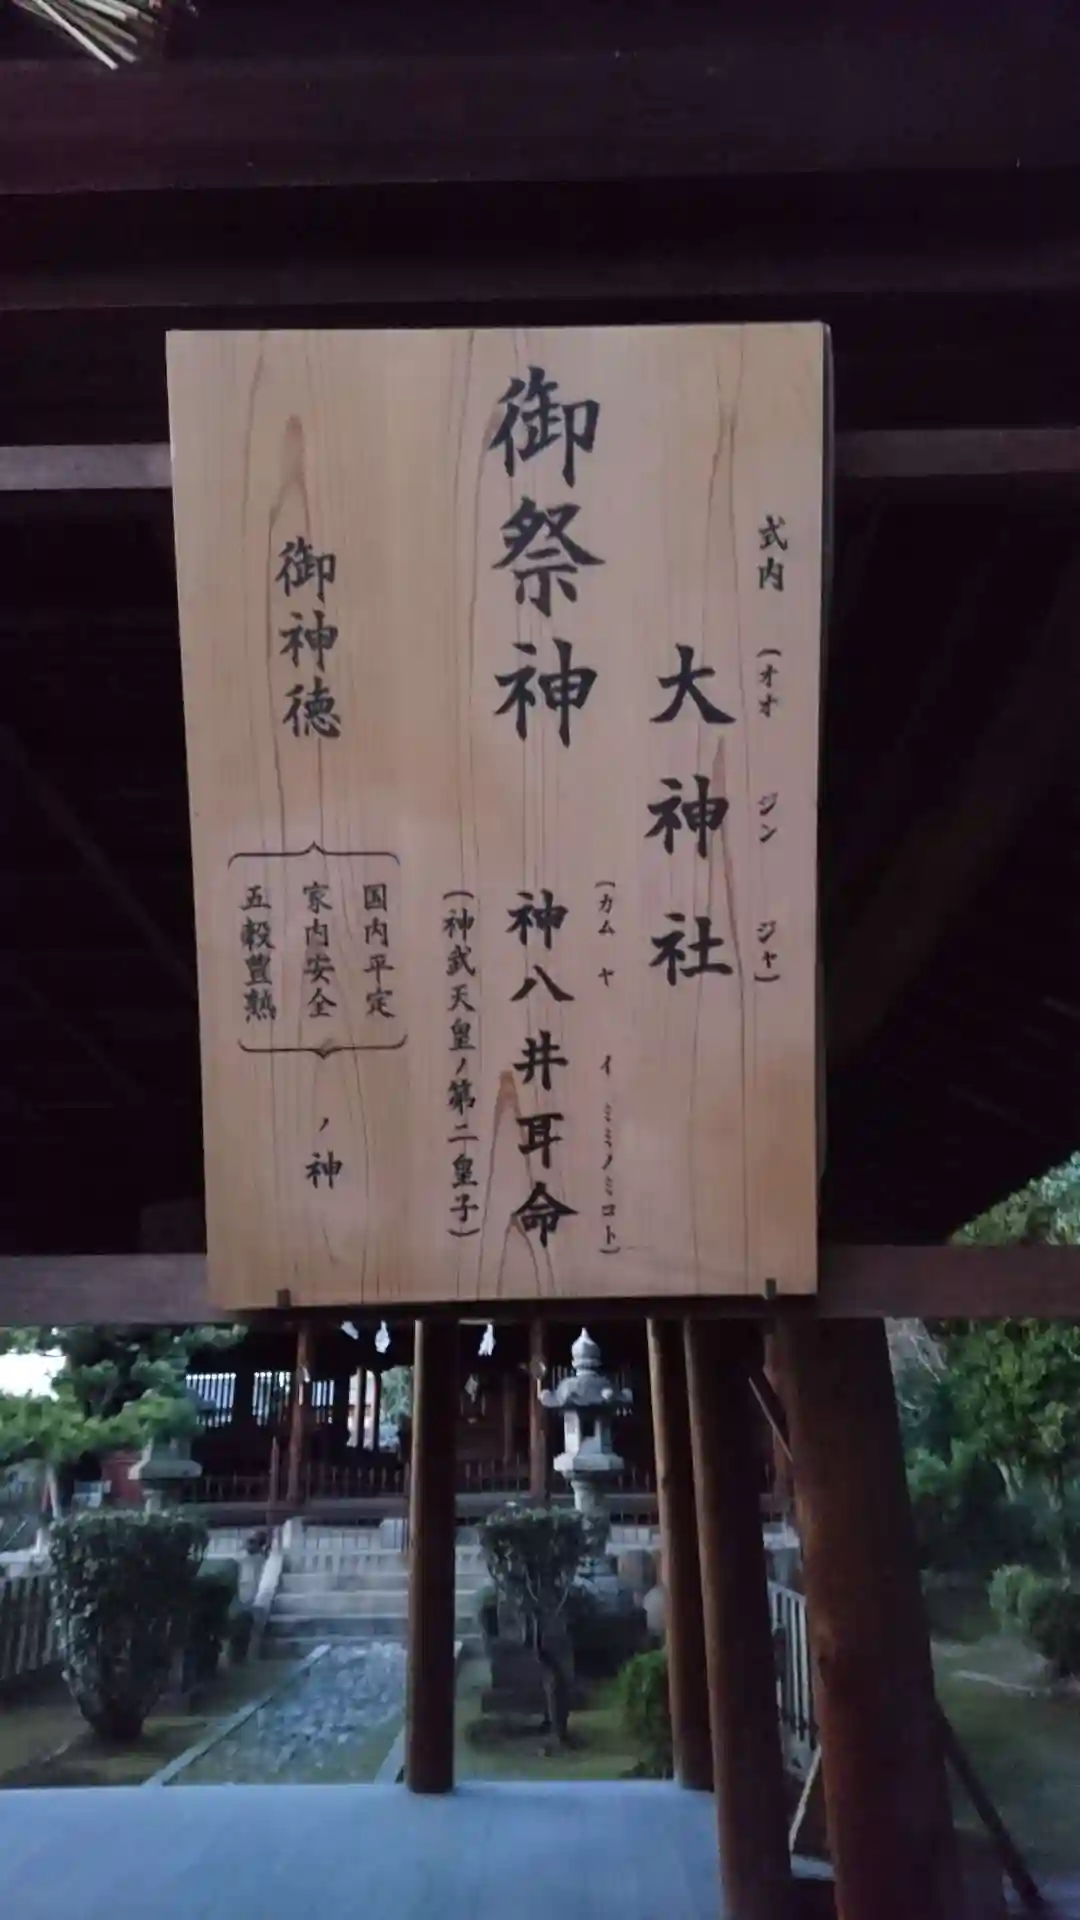 式内
(オオ ジン ジャ)
大神社
御祭神
(カムヤ イ ミミノミコト)
神八井耳命
(神武天皇ノ第二皇子)
御神徳
国内平定
家内安全
五穀豊熟
ノ神